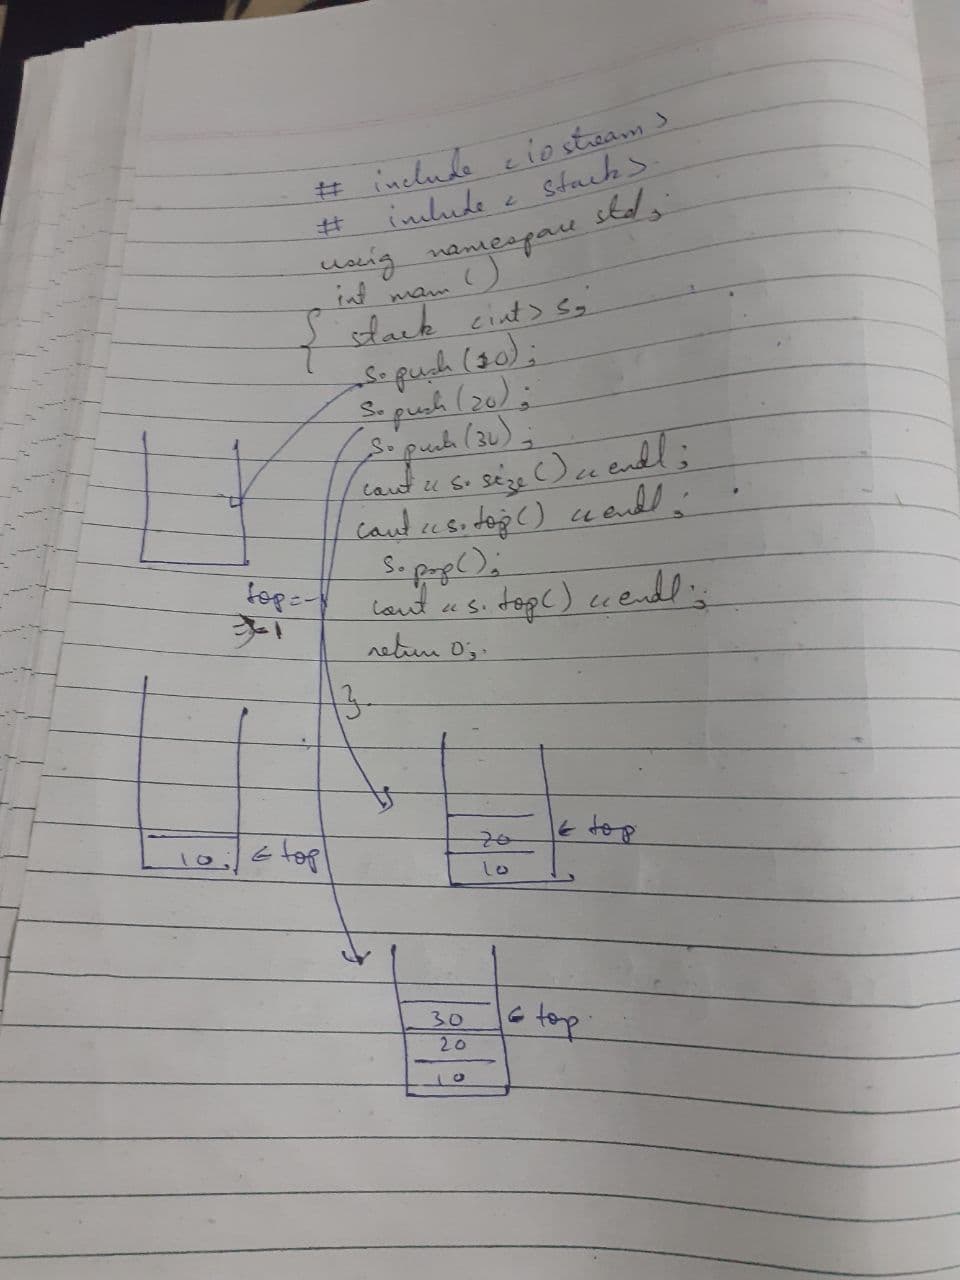 # include <iostream>
# include < stack>
using namespace std;
int main ()
{ stack <int> s;
s. push (10);
s. push (20);
s. push (30);
cout << s. size () << endl;
cout << s. top () << endl;
s. pop ();
cout << s. top () << endl;
return 0;
}
top = -1
10
← top
20
10
← top
30
20
10
← top